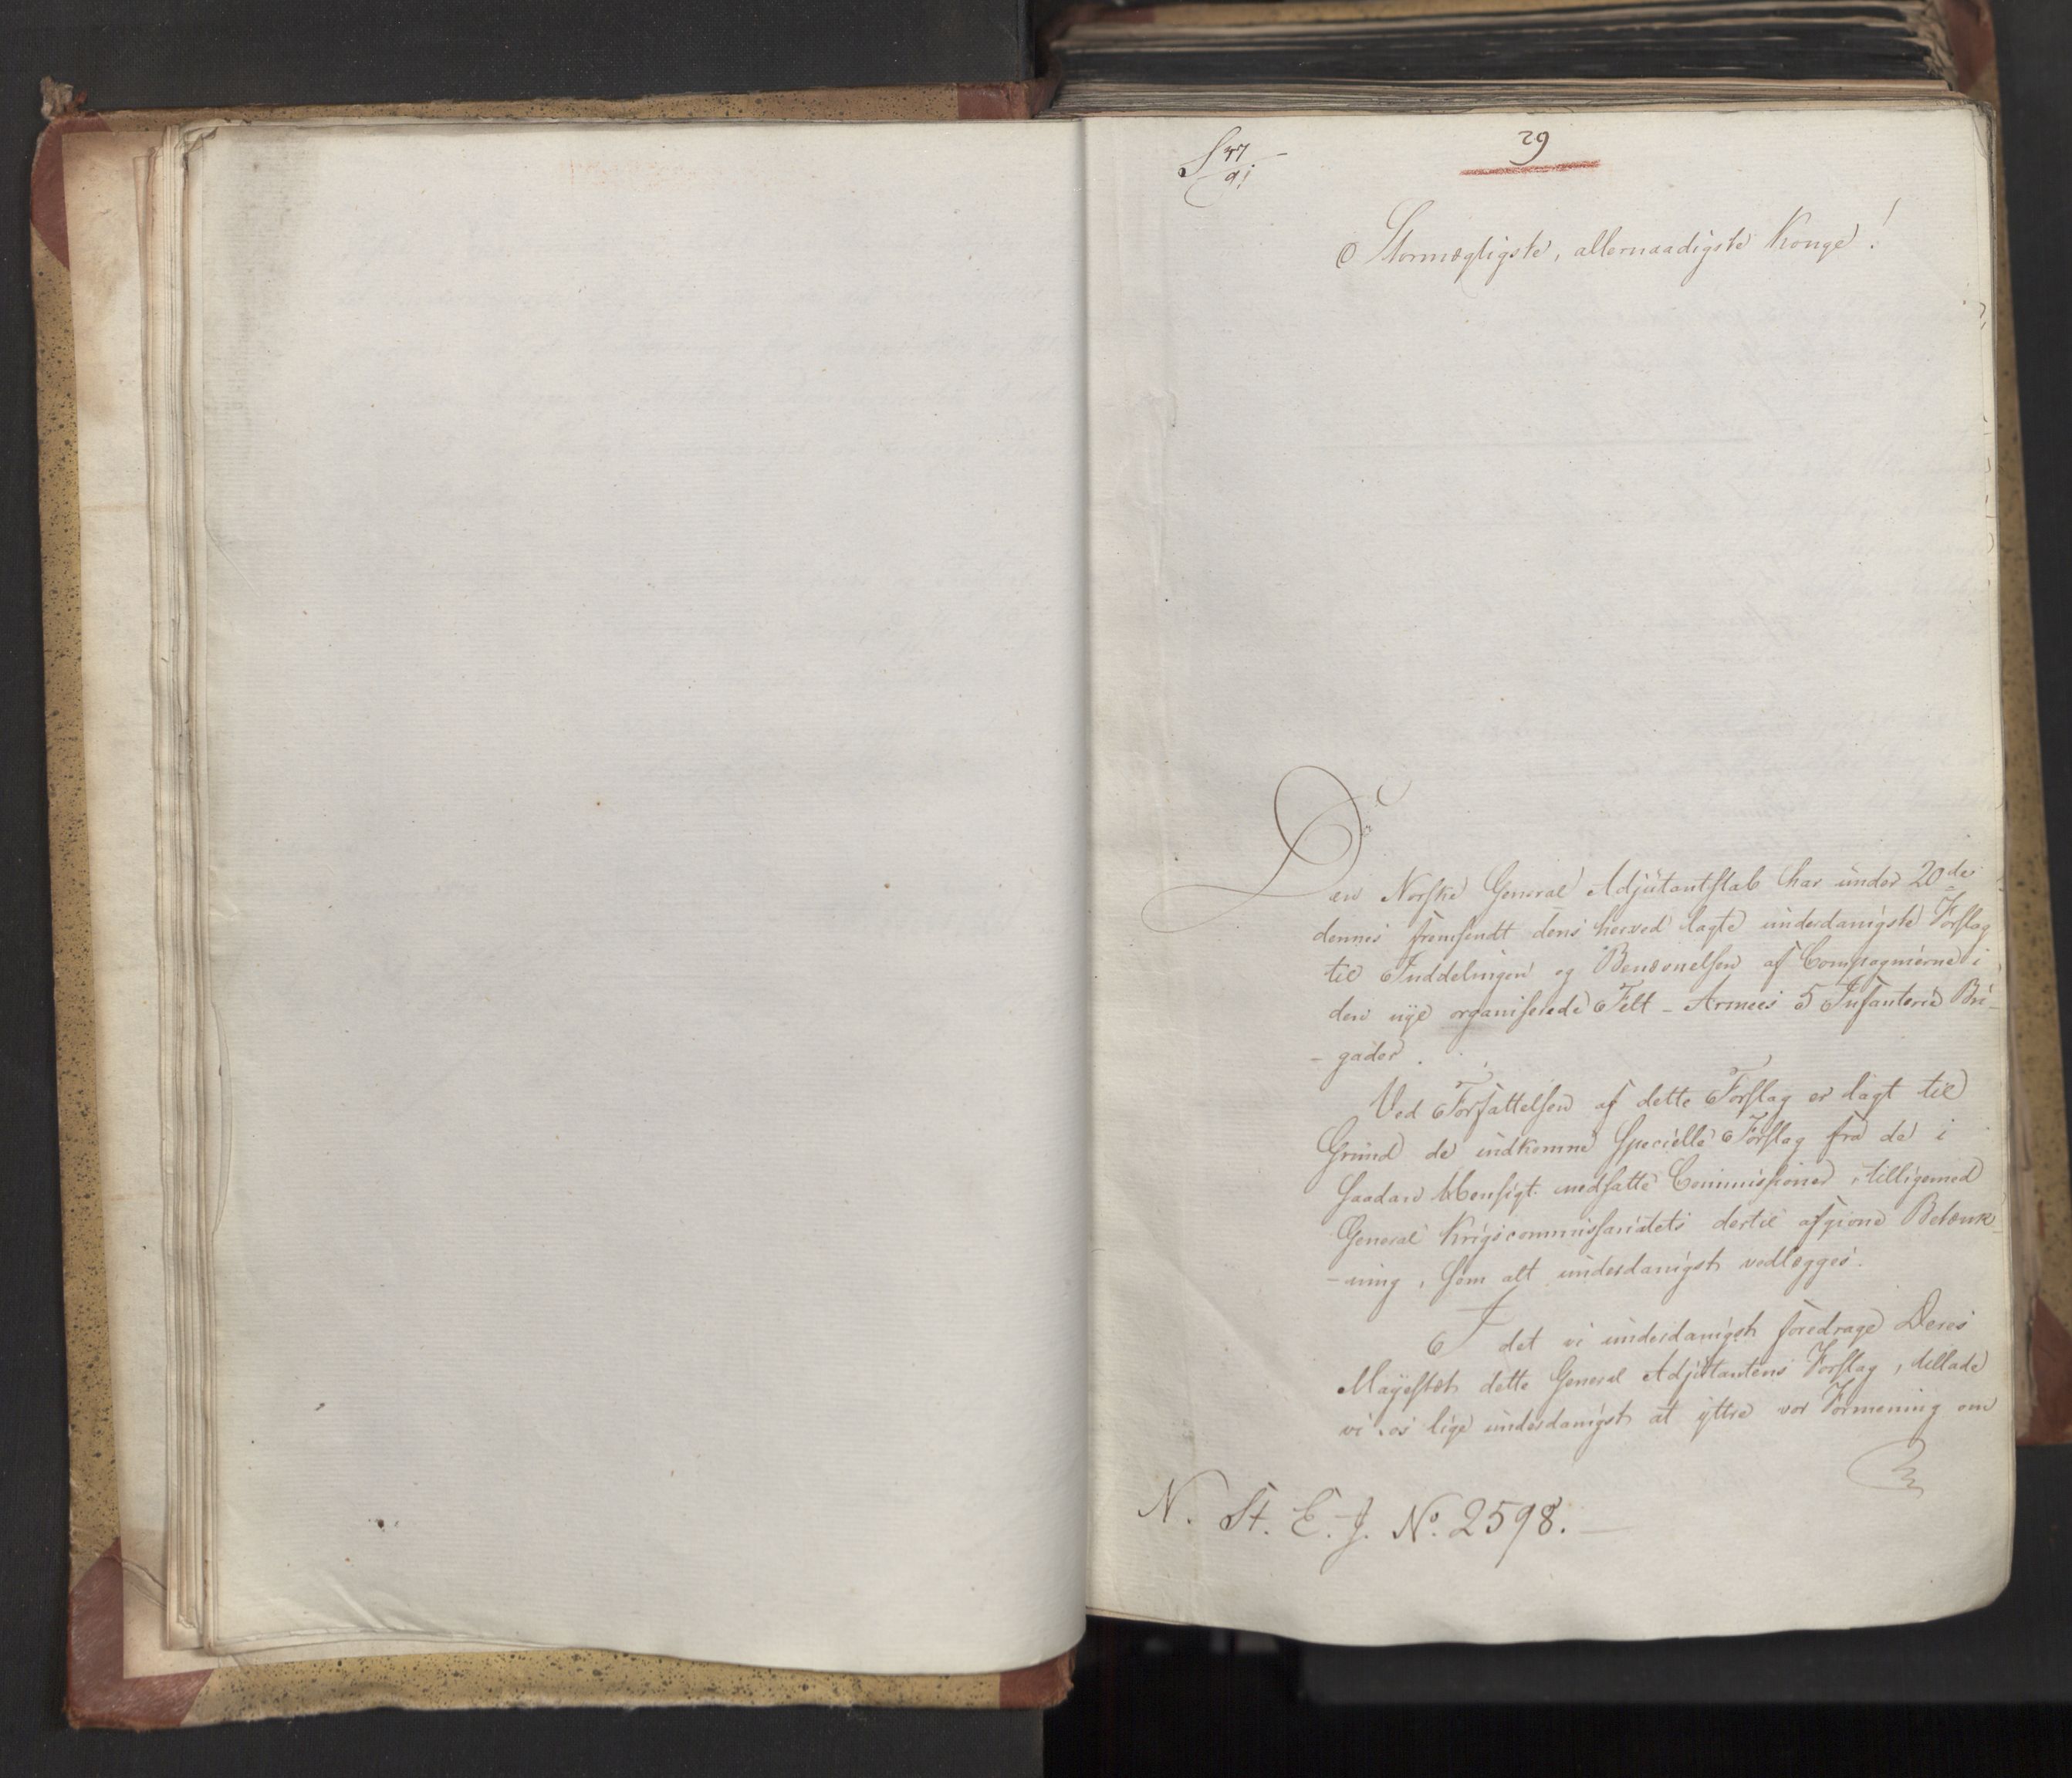 S 47/91
29
Stormægtigste, allernaadigste Konge!
Den Norske General Adjütantstab har ünder 20de
dennes fremsendt dens herved lagte ünderdanigste Forslag
til Inddelingen og Benævnelsen af Compagnierne i
den nye organiserede Felt-Armees 5 Infanterie Bri-
-gader.
Ved Forfattelsen af dette Forslag er lagt til
Gründ de indkomne specielle Forslag fra de i
saadan Hensigt nedsatte Commissioner, tilligemed
General Krigscommissariatets dertil afgivne Betænk-
-ning, som alt ünderdanigst vedlægges.
I det vi ünderdanigst foredrage Deres
Mayestæt dette General Adjütantens Forslag, tillade
vi os lige ünderdanigst at yttre vor Formening om
N. St. E. J. No. 2598.